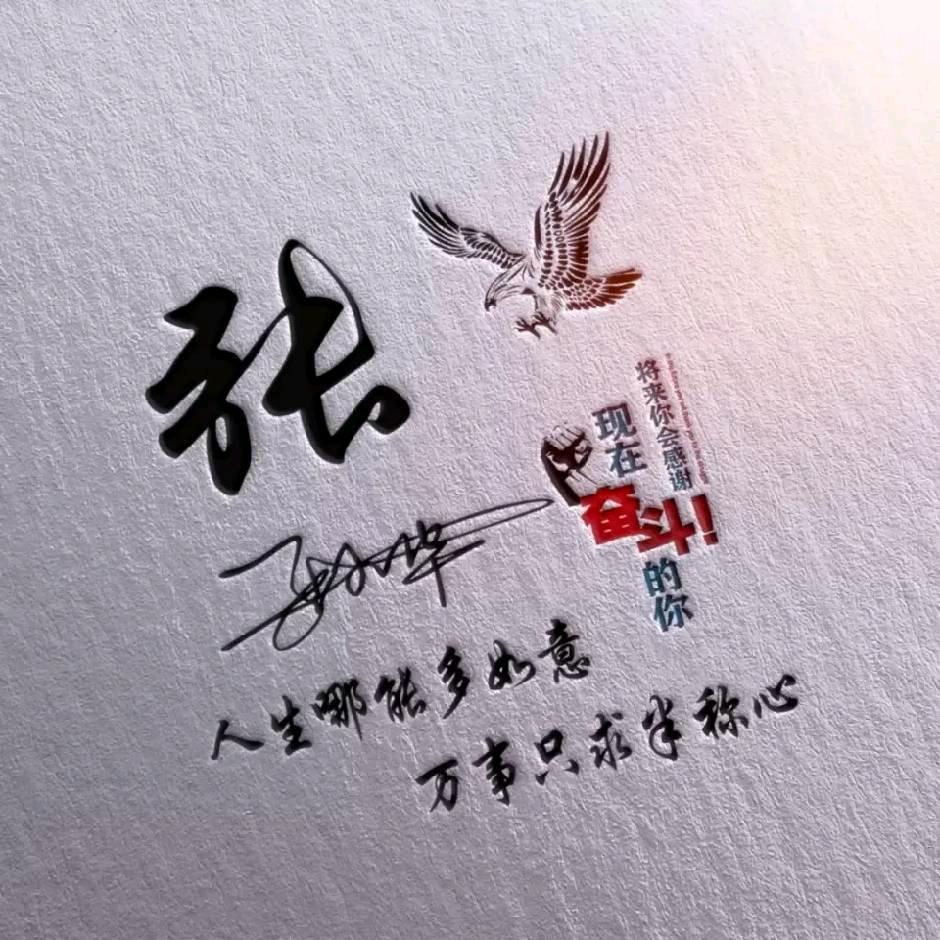 张
将来你会感谢
现在
奋斗
的你
人生哪能多如意
万事只求半称心